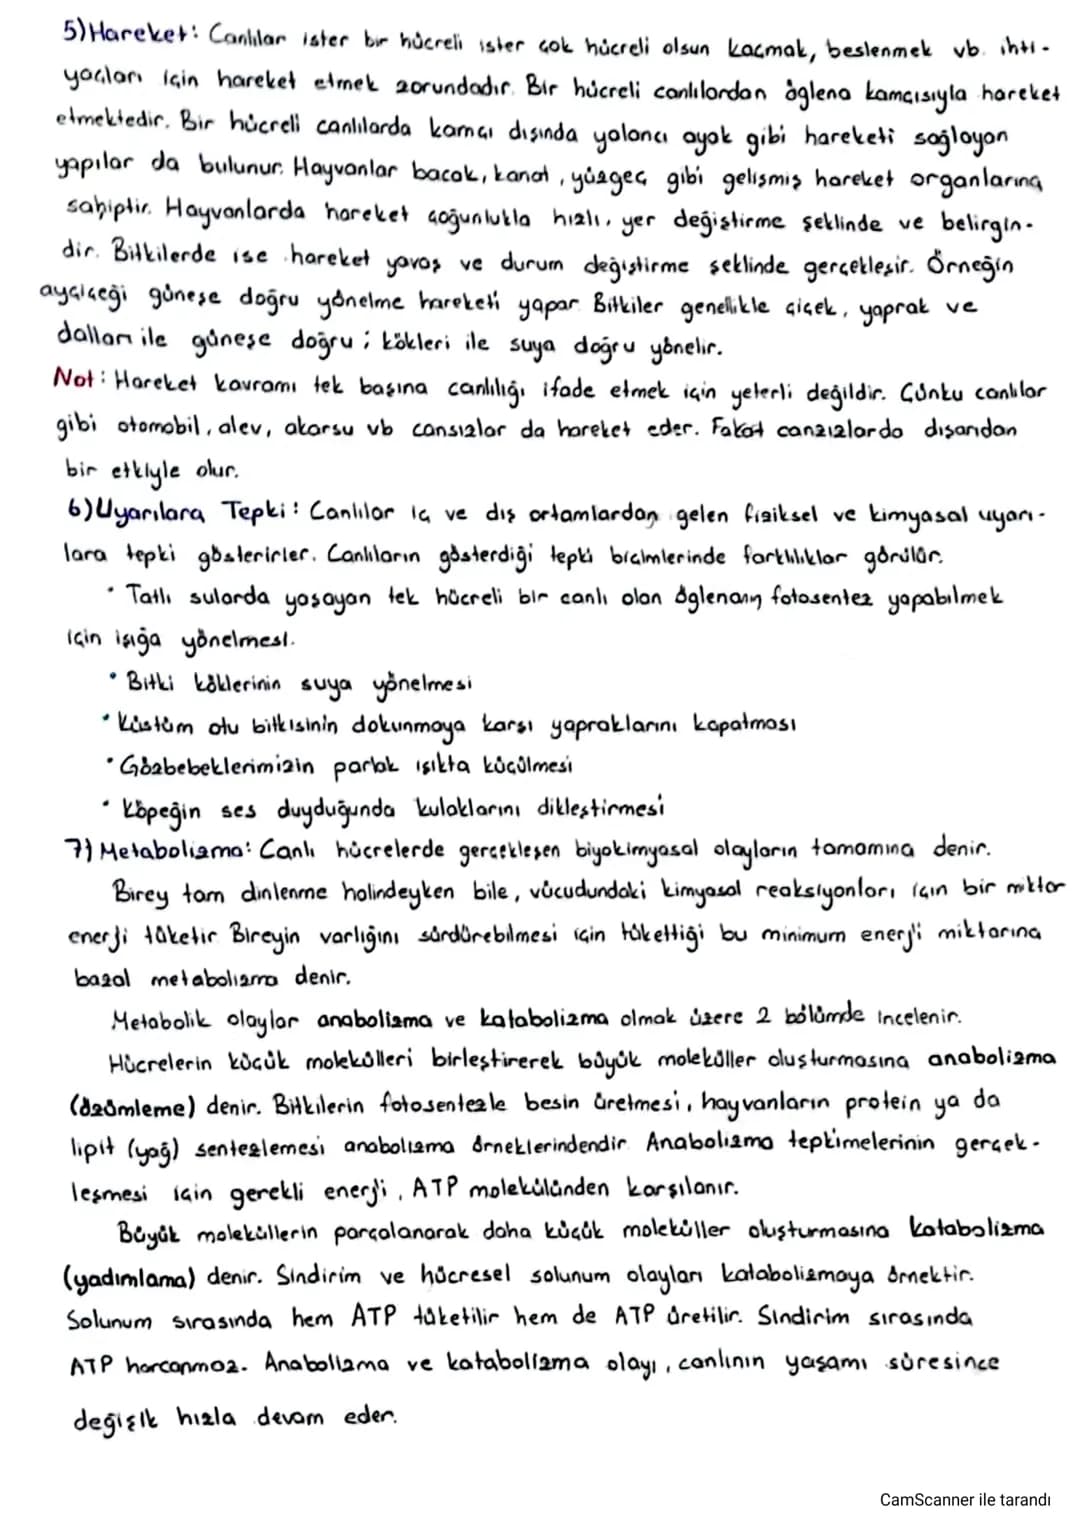 5) Hareket: Canlılar ister bir hücreli ister çok hücreli olsun kaçmak, beslenmek vb. ihti-
yaçları için hareket etmek zorundadır. Bir hücreli canlılardan öglena kamçısıyla hareket
etmektedir. Bir hücreli canlılarda kamçı dışında yalancı ayak gibi hareketi sağlayan
yapılar da bulunur. Hayvanlar bacak, kanat, yüzgeç gibi gelişmiş hareket organlarına
sahiptir. Hayvanlarda hareket çoğunlukla hızlı, yer değiştirme şeklinde ve belirgin-
dir. Bitkilerde ise hareket yavaş ve durum değiştirme şeklinde gerçekleşir. Örneğin
ayçiçeği güneşe doğru yönelme hareketi yapar. Bitkiler genellikle çiçek, yaprak ve
dalları ile güneşe doğru; kökleri ile suya doğru yönelir.
Not: Hareket kavramı tek başına canlılığı ifade etmek için yeterli değildir. Çünkü canlılar
gibi otomobil, alev, akarsu vb cansızlar da hareket eder. Fakat canzızlarda dışarıdan
bir etkiyle olur.
6) Uyarılara Tepki: Canlılar iç ve dış ortamlardan gelen fiziksel ve kimyasal uyarı-
lara tepki gösterirler. Canlıların gösterdiği tepki biçimlerinde farklılıklar görülür.
• Tatlı sularda yaşayan tek hücreli bir canlı olan öglenanın fotosentez yapabilmek
için ışığa yönelmesi.
• Bitki köklerinin suya yönelmesi
• Küstüm otu bitkisinin dokunmaya karşı yapraklarını kapatması
• Gözbebeklerimizin parlak ışıkta küçülmesi
• Köpeğin ses duyduğunda kulaklarını dikleştirmesi
7) Metabolizma: Canlı hücrelerde gerçekleşen biyokimyasal olayların tamamına denir.
Birey tam dinlenme halindeyken bile, vücudundaki kimyasal reaksiyonları için bir miktar
enerji tüketir. Bireyin varlığını sürdürebilmesi için tükettiği bu minimum enerji miktarına
bazal metabolizma denir.
Metabolik olaylar anabolizma ve katabolizma olmak üzere 2 bölümde incelenir.
Hücrelerin küçük molekülleri birleştirerek büyük moleküller oluşturmasına anabolizma
(özümleme) denir. Bitkilerin fotosentezle besin üretmesi, hayvanların protein ya da
lipit (yağ) sentezlemesi anabolizma örneklerindendir. Anabolizma tepkimelerinin gerçek-
leşmesi için gerekli enerji, ATP molekülünden karşılanır.
Büyük moleküllerin parçalanarak daha küçük moleküller oluşturmasına katabolizma
(yadımlama) denir. Sindirim ve hücresel solunum olayları katabolizmaya örnektir.
Solunum sırasında hem ATP tüketilir hem de ATP üretilir. Sindirim sırasında
ATP harcanmaz. Anabolizma ve katabolizma olayı, canlının yaşamı süresince
değişik hızla devam eder.
CamScanner ile tarandı